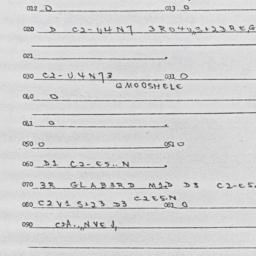 012 0 013 0
020 D C2-U4N7 3R04U,S+23RE,G
021 .
030 C2-U4N73 031 0
GMOOSHELE
040 0
041 0
050 0 051 0
060 D1 C2-E5..N
070 3R GLAB3RD M1,D D3 C2-E5.
C2E5.N
080 C2V1 S+23 D3 081 0
090